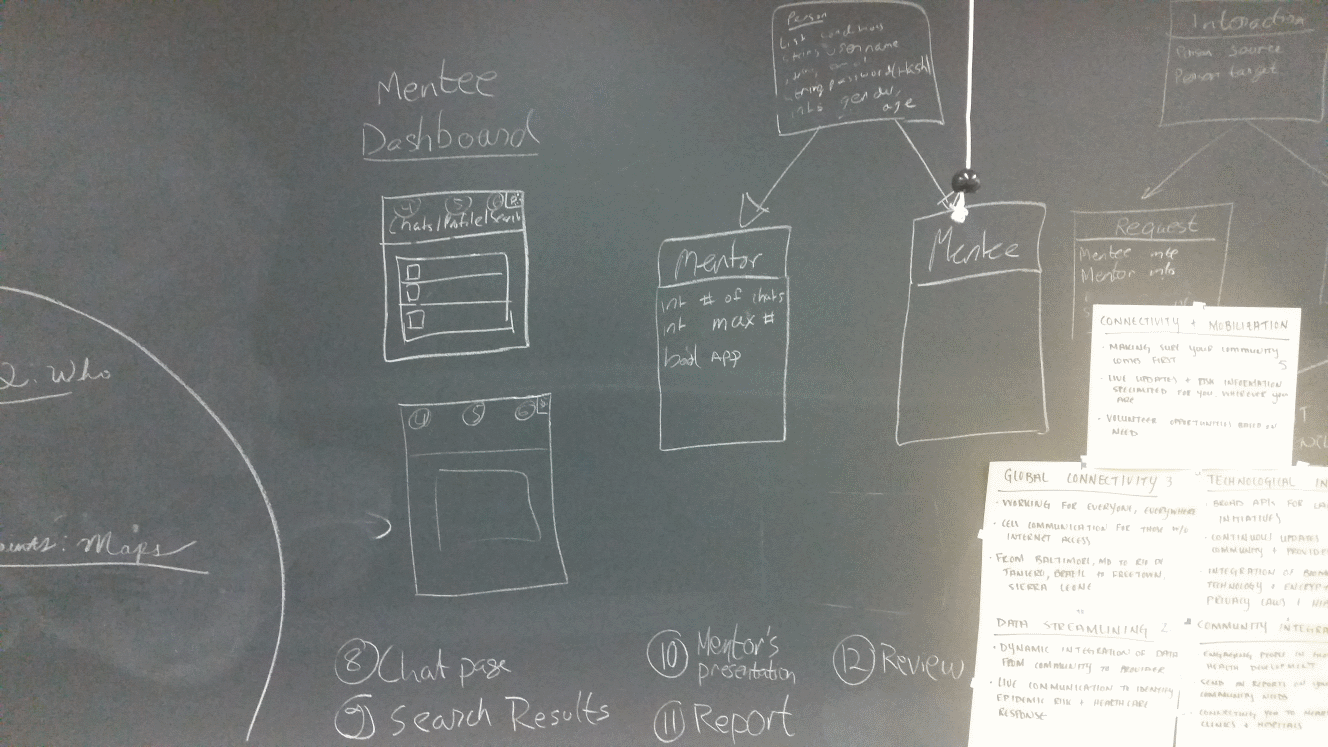 2. Who
Maps
Mentee
Dashboard
4 5 6
Chats/Profile/Search
4 5 6
Person
List conditions
string username
string email
string password (Hash)
ints gender,
age
Mentor
int # of chats
int max #
bool APP
Mentee
Interaction
Person source
Person target
Request
Mentee info
Mentor info
CONNECTIVITY + MOBILIZATION
• MAKING SURE YOUR COMMUNITY
COMES FIRST
5
• LIVE UPDATES + RISK INFORMATION
SPECIALIZED FOR YOU, WHEREVER YOU
ARE
• VOLUNTEER OPPORTUNITIES BASED ON
NEED
GLOBAL CONNECTIVITY 3
• WORKING FOR EVERYONE, EVERYWHERE
• CELL COMMUNICATION FOR THOSE W/O
INTERNET ACCESS
• FROM BALTIMORE, MD TO RIO DE
JANIERO, BRAZIL TO FREETOWN,
SIERRA LEONE
TECHNOLOGICAL IN
• BROAD APIs FOR
INITIATIVES
• CONTINUOUS UPDATES
COMMUNITY + PROVIDE
• INTEGRATION OF
TECHNOLOGY + ENCRYPT
PRIVACY LAWS
DATA STREAMLINING 2
• DYNAMIC INTEGRATION OF DATA
FROM COMMUNITY TO PROVIDER
• LIVE COMMUNICATION TO IDENTIFY
EPIDEMIC RISK + HEALTHCARE
RESPONSE
COMMUNITY INTEGRA
ENGAGING PEOPLE IN
HEALTH DEVELOPMENT
SEND IN REPORTS ON
COMMUNITY NEEDS
CONNECTING YOU TO
CLINICS + HOSPITALS
8 Chat page
9 Search Results
10 Mentor's
presentation
11 Report
12 Review